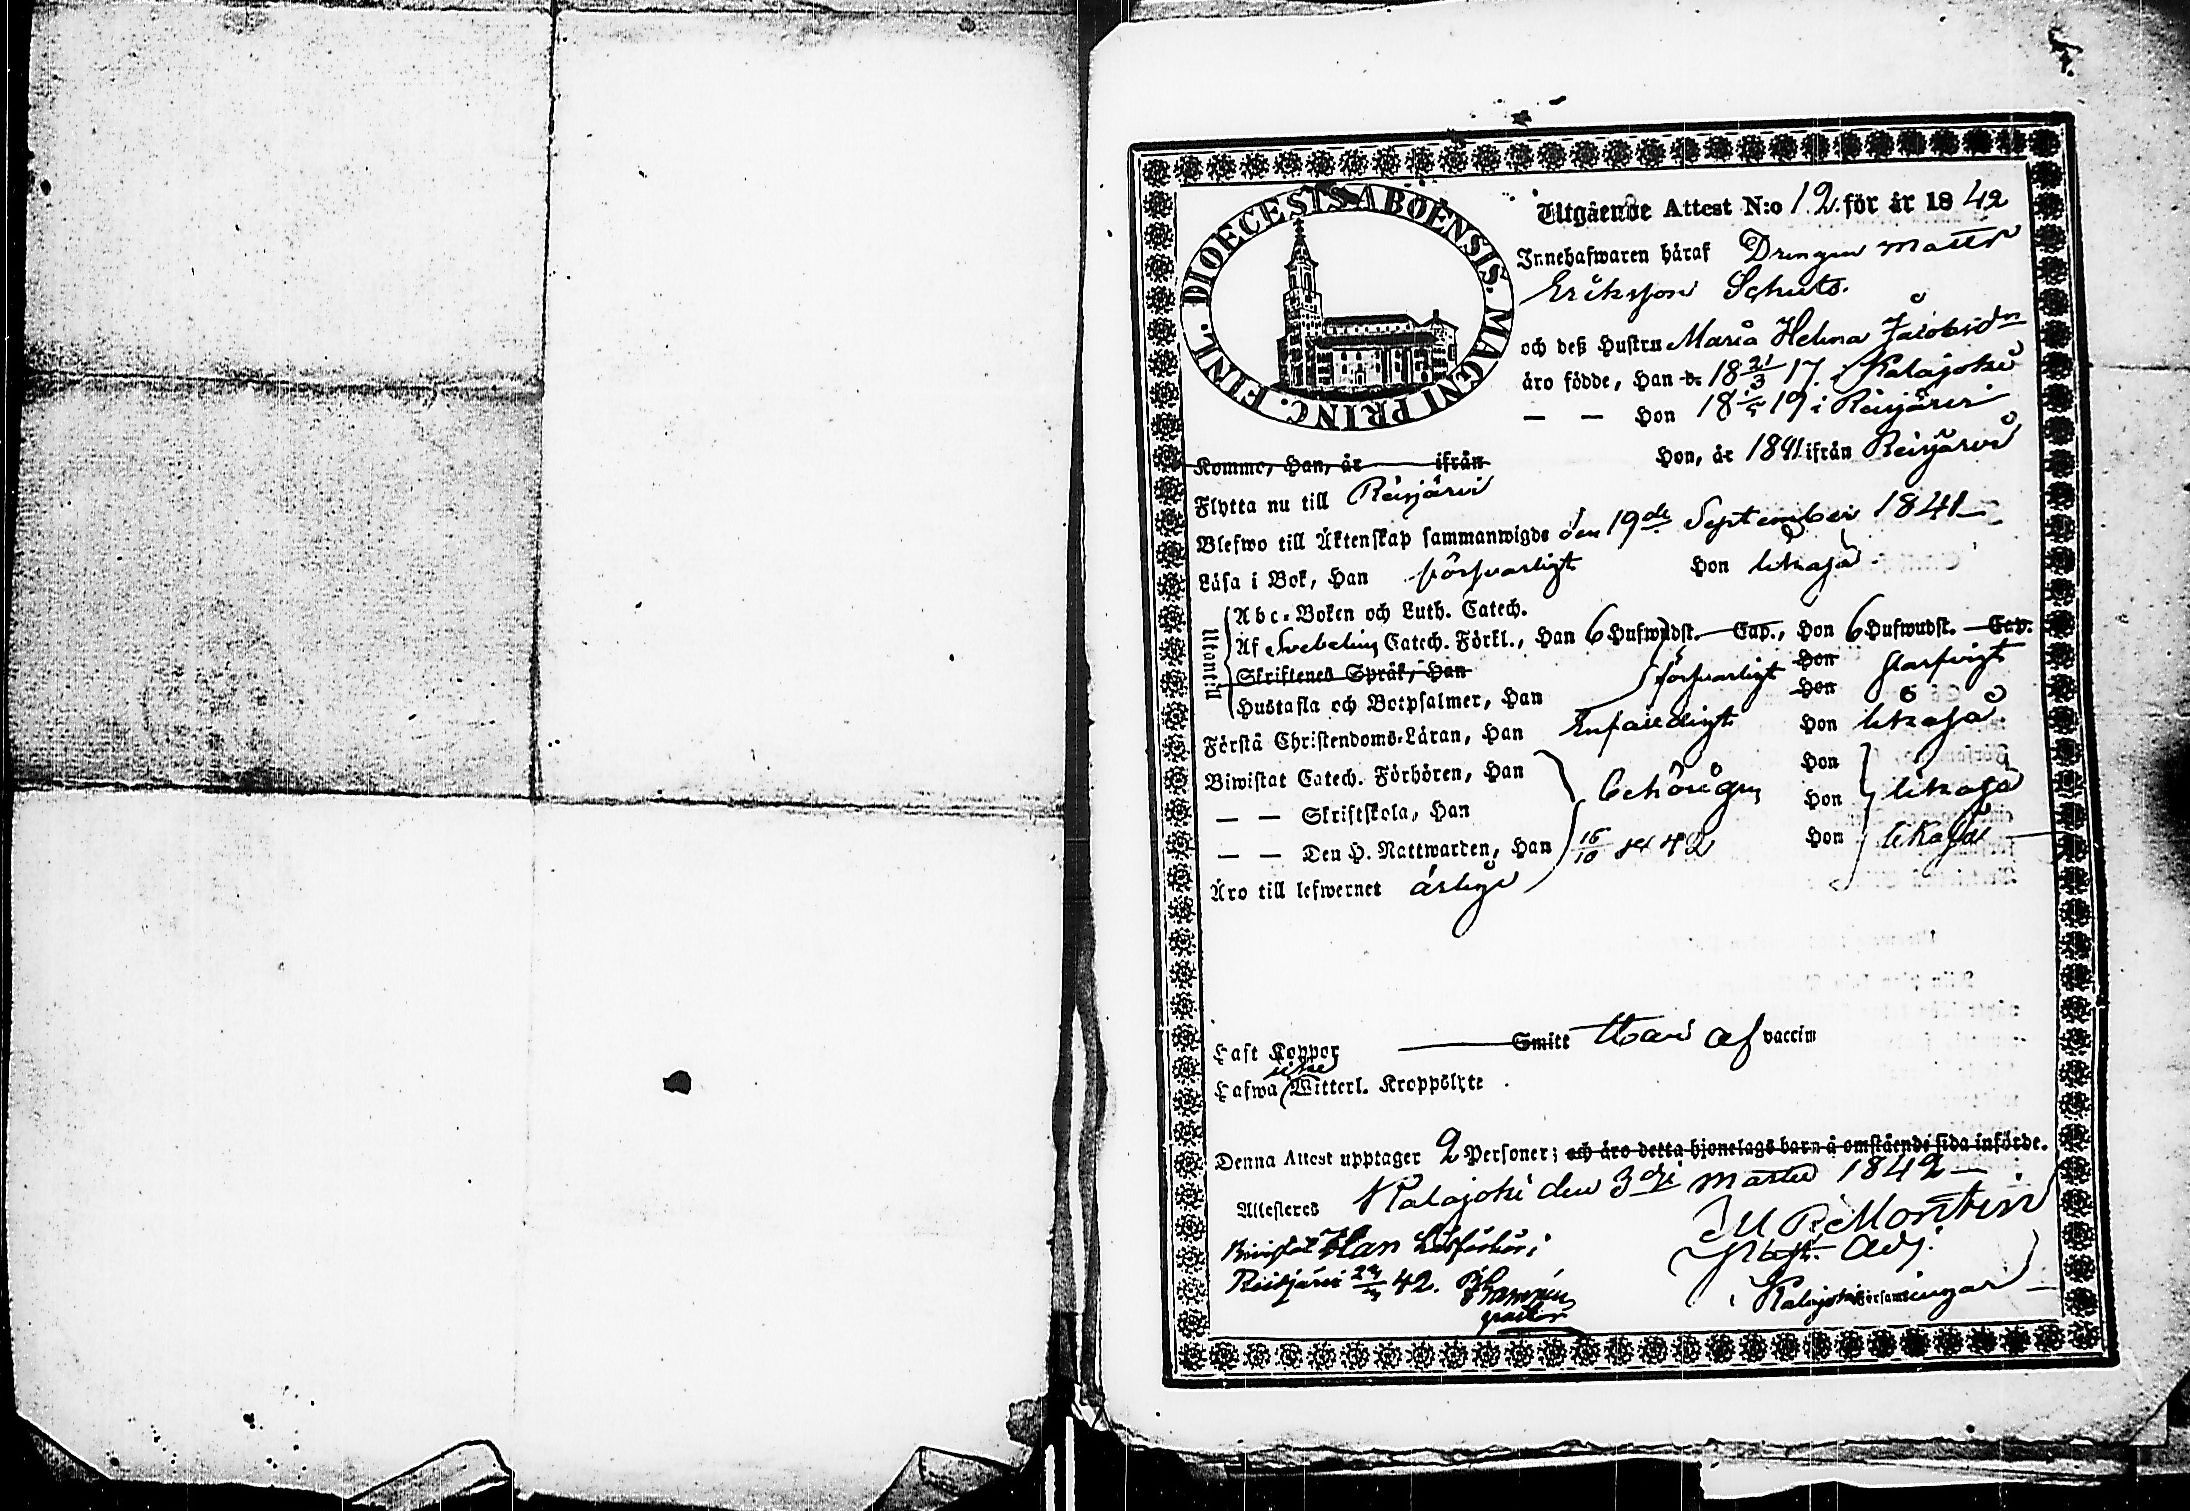 DIOECESIS ABOËNSIS. MAGNI PRINC. FINL.
Utgående Attest N:o 12. för år 1842
Innehafwaren häraf Drengen Matts
Eriksson Schuts.
och deß Hustru Maria Helena Jacobsdr
äro födde, Han d. 18 21/3 17. i Kalajoki
— — Hon 18 1/5 19 i Reisjärvi
Komme, Han, år ifrån Hon, år 1841 ifrån Reisjärvi
Flytta nu till Reisjärvi
Blefwo till Äktenskap sammanwigde den 19de September 1841
Läsa i Bok, Han försvarligt Hon likaså.
Utantill
Abc-Boken och Luth. Catech.
Af Svebelii Catech. Förkl., Han 6 Hufwudst. Cap., Hon 6 Hufwudst. Cap.
Skriftenes Språk, Han Hon
Hustafla och Botpsalmer, Han försvarligt Hon
Förstå Christendoms-Läran, Han Enfaldigt Hon likaså.
Biwistat Catech. Förhören, Han Hon
— — Skriftskola, Han behörigen Hon likaså
— — Den H. Nattwarden, Han 16/10 42 Hon likaså
Äro till lefwernet ärlige
Haft Koppor Smitt af vaccin
Hafwa icke Witterl. Kroppslyte
Denna Attest upptager 2 Personer; och äro detta hjonelags barn å omstående sida införde.
Attesteres Kalajoki den 3dje Martii 1842
Montin
Past. Adj.
i Kalajoki församlingar
Bivistat Han Läsförhör i
Reisjärvi 42.